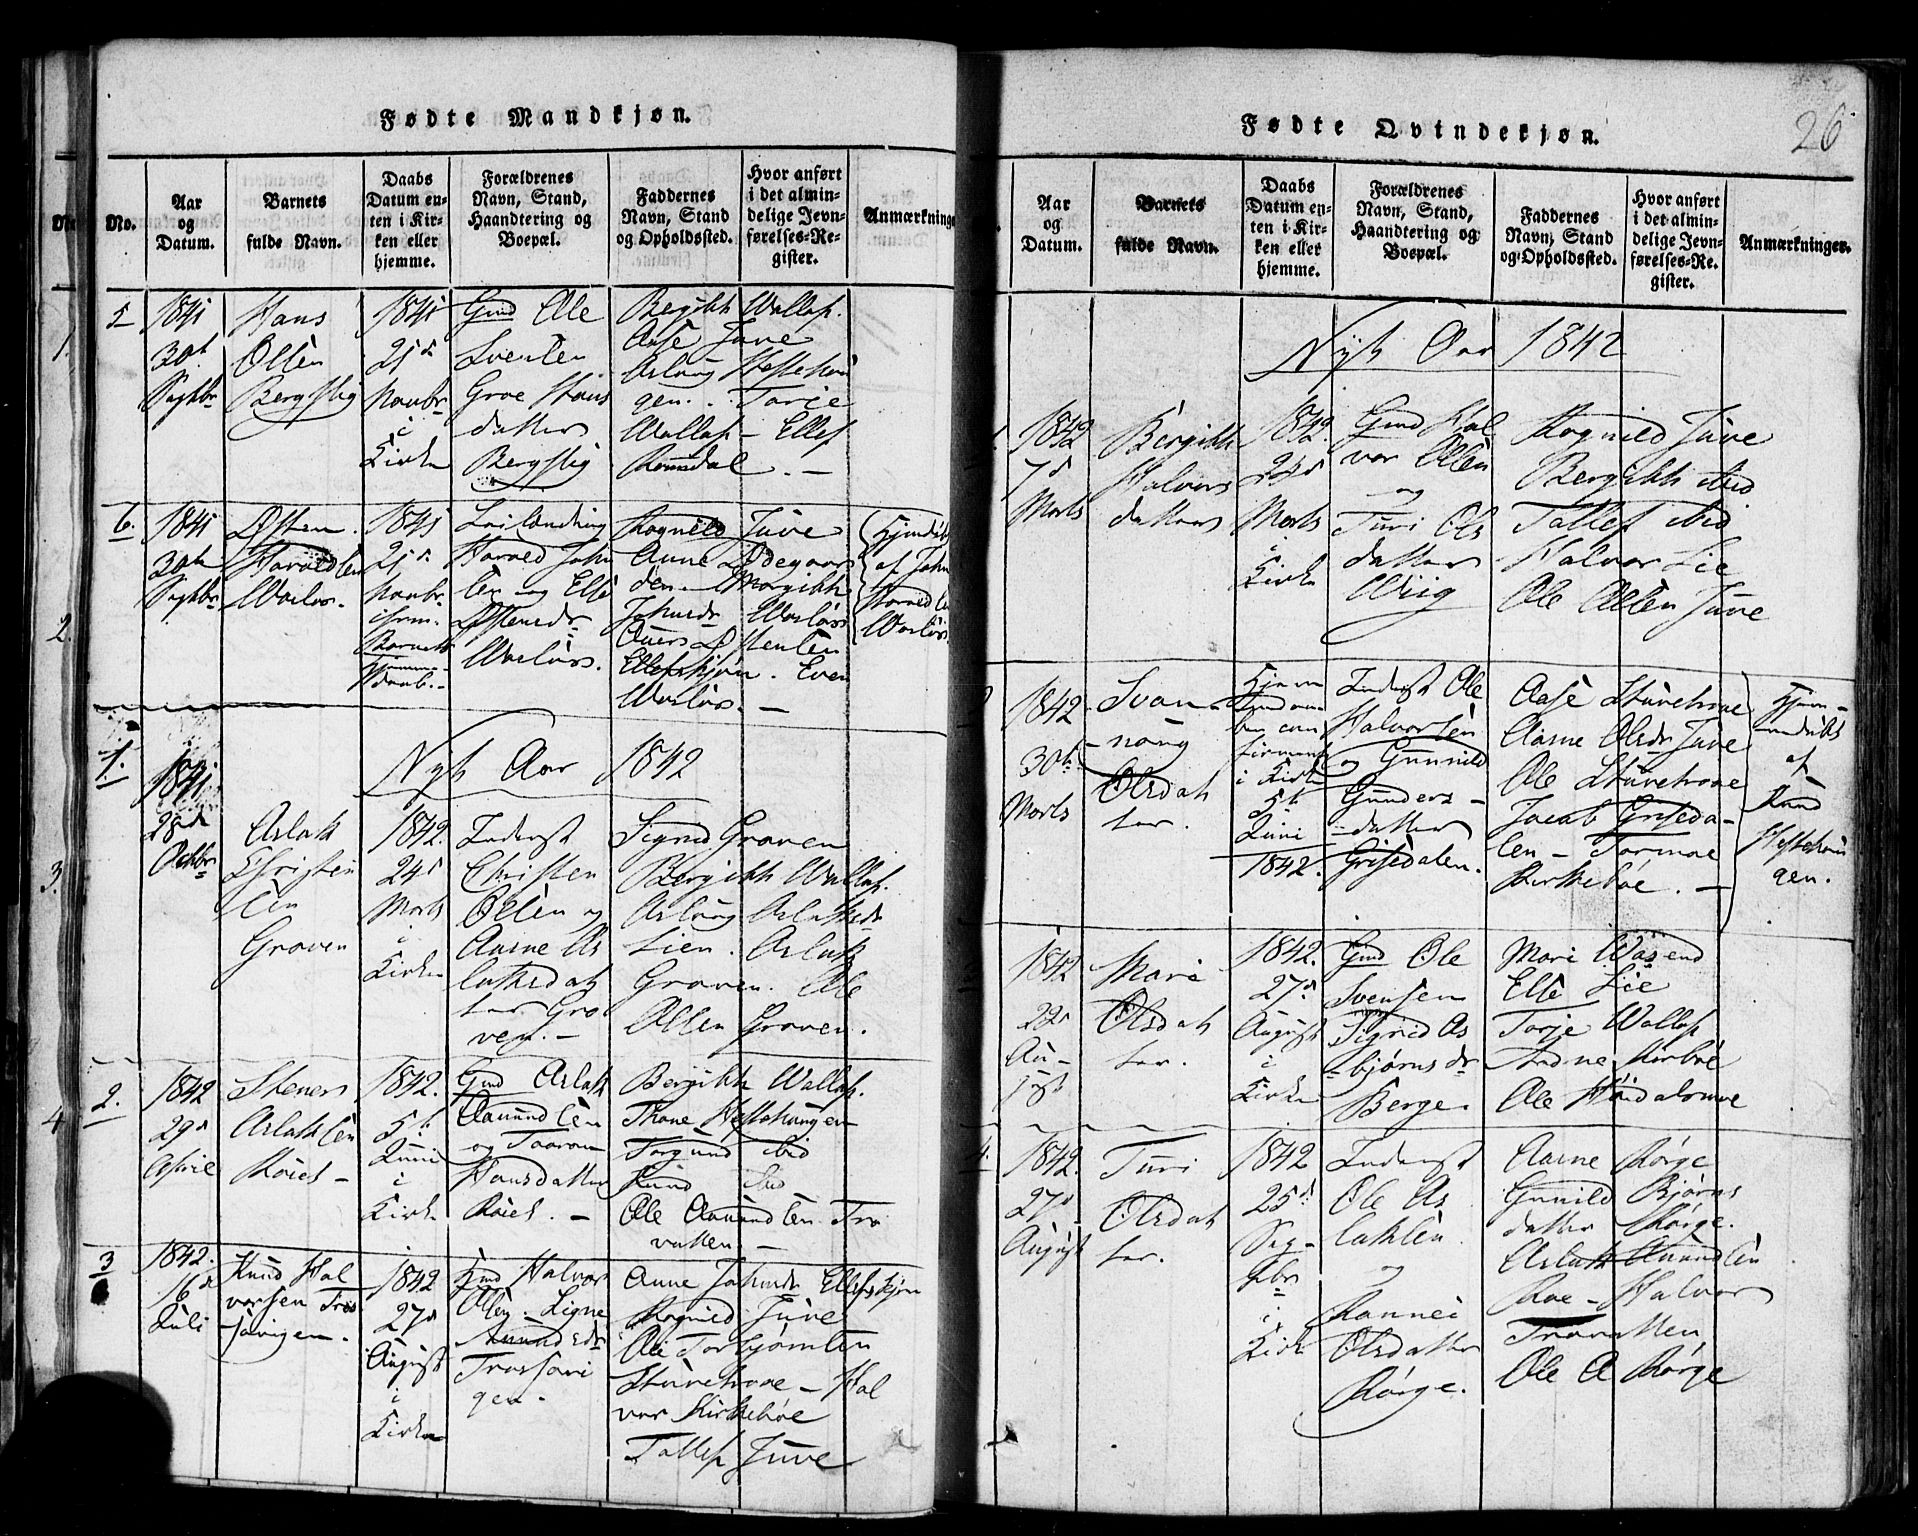 Fødte Mandkjøn.
No.
Aar og Datum.
Barnets fulde Navn.
Daabs Datum enten i Kirken eller hjemme.
Forældrenes Navn, Stand, Haandtering og Boepæl.
Faddernes Navn, Stand og Opholdssted.
Hvor anført i det almindelige Jevnførelses-Register.
Anmærkninge
5
1841
30te
Septbr
Hans
Olsen
Bergstig
1841
21de
Novbr
i
Kirken
Gmd Ole
Svensen
Groe Hans
datter
Bergstig
Bergith Wallap.
Aase Juve
Aslaug Heftehau
gen. Torje
Wallap - Ellef
Romsdal. -
6.
1841
30te
Septbr
Østen
Haraldsen
Wasløs.
1841
21de
Novbr
Barnets
Hjemme-
daab. -
Leilænding
Harald John
sen og Elle
Østensdr
Wasløs.
Ragnild Juve
Anne Ødegaar
den - Margith
Johnsdr Wasløs
Østensen
Ellefskjøn. Even
Wasløs. -
Hjemdøbt
af John
Haraldsen
Wasløs
Nyt Aar 1842
1.
1841
28de
Octbr
Aslak
Christen
sen
Groven
1842.
24de
Marts
i
Kirken
Inderst
Christen
Olsen og
Aasne As
laksdat
ter Gro
ven. -
Sigrid Groven
Bergith Wallap.
Aslaug Aslaksdr
Lien. Aslak
Groven. Ole
Olsen Groven.
2.
1842
29de
April
Steners
Aslaksen
Roiet -
1842.
5te
Juni
i
Kirken
Gmd Aslak
Aamundsen
og Taaran
Hansdatter
Roiet. -
Bergith Wallap.
Thone Heftehaugen
Torgund ibid
Knud ibid
Ole Aamundsen Tro
vatten -
3
1842.
16de
Juli
Knud Hal
vorsen Tros
savigen.
1842
27de
August
i
Kirken
Gmd Halvor
Olsen. Signe
Amundsdr
Trossavi
gen.
Anne Johnsdr Ellefskjøn
Ragnild Juve
Ole Torbjørnsen
Stuvetrone - Hal
vor Kirkebøe
Tallef Juve
26
Fødte Qvindekjøn.
Aar og Datum.
Barnets fulde Navn.
Daabs Datum enten i Kirken eller hjemme.
Forældrenes Navn, Stand, Haandtering og Boepæl.
Faddernes Navn, Stand og Opholdssted.
Hvor anført i det almindelige Jevnførelses-Register.
Anmærkninger.
Nyt Aar 1842
1842
7de
Marts
Bergith
Halvors
datter
1842.
24de
Marts
i
Kirken
Gmd Hal
vor Olsen
og
Turi Ols
datter
Wiig
Ragnild Juve
Bergith ibid
Tallef ibid
Halvor Lie
Ole Olsen Juve
1842
30te
Marts
Svan
naug
Olsdat
ter.
i Kirken
5te
Juni
1842.
Inderst Ole
Halvorsen
og Gunnild
Gunders-
datter
Grisedalen.
Aase Stuvetrone
Aasne Olsdr Juve
Ole Stuvetrone
Jacob Griseda-
len - Tormoe
Kirkebøe. -
Hjem-
døbt
af
Knud
Heftehau
gen.
1842
22de
Au-
gust
Mari
Olsdat
ter.
1842.
27de
August
i
Kirken
Gmd Ole
Svensen
Sigrid As
bjørnsdr
Berge.
Mari Wasend
Elle Lie
Torje Wallap
Kirkebøe
Ole Høidalsmoe
4.
1842.
27de
August
Turi
Olsdat
ter.
1842
25de
Sep-
tbr
i
Kirken
Inderst
Ole As
laksen
og
Rannei
Olsdatter
Rørge.
Aasne Rørge
Gunild Bjørns
datter Rørge.
Aslak Amundsen
Roe - Halvor
Trovatten
Ole A Rørge